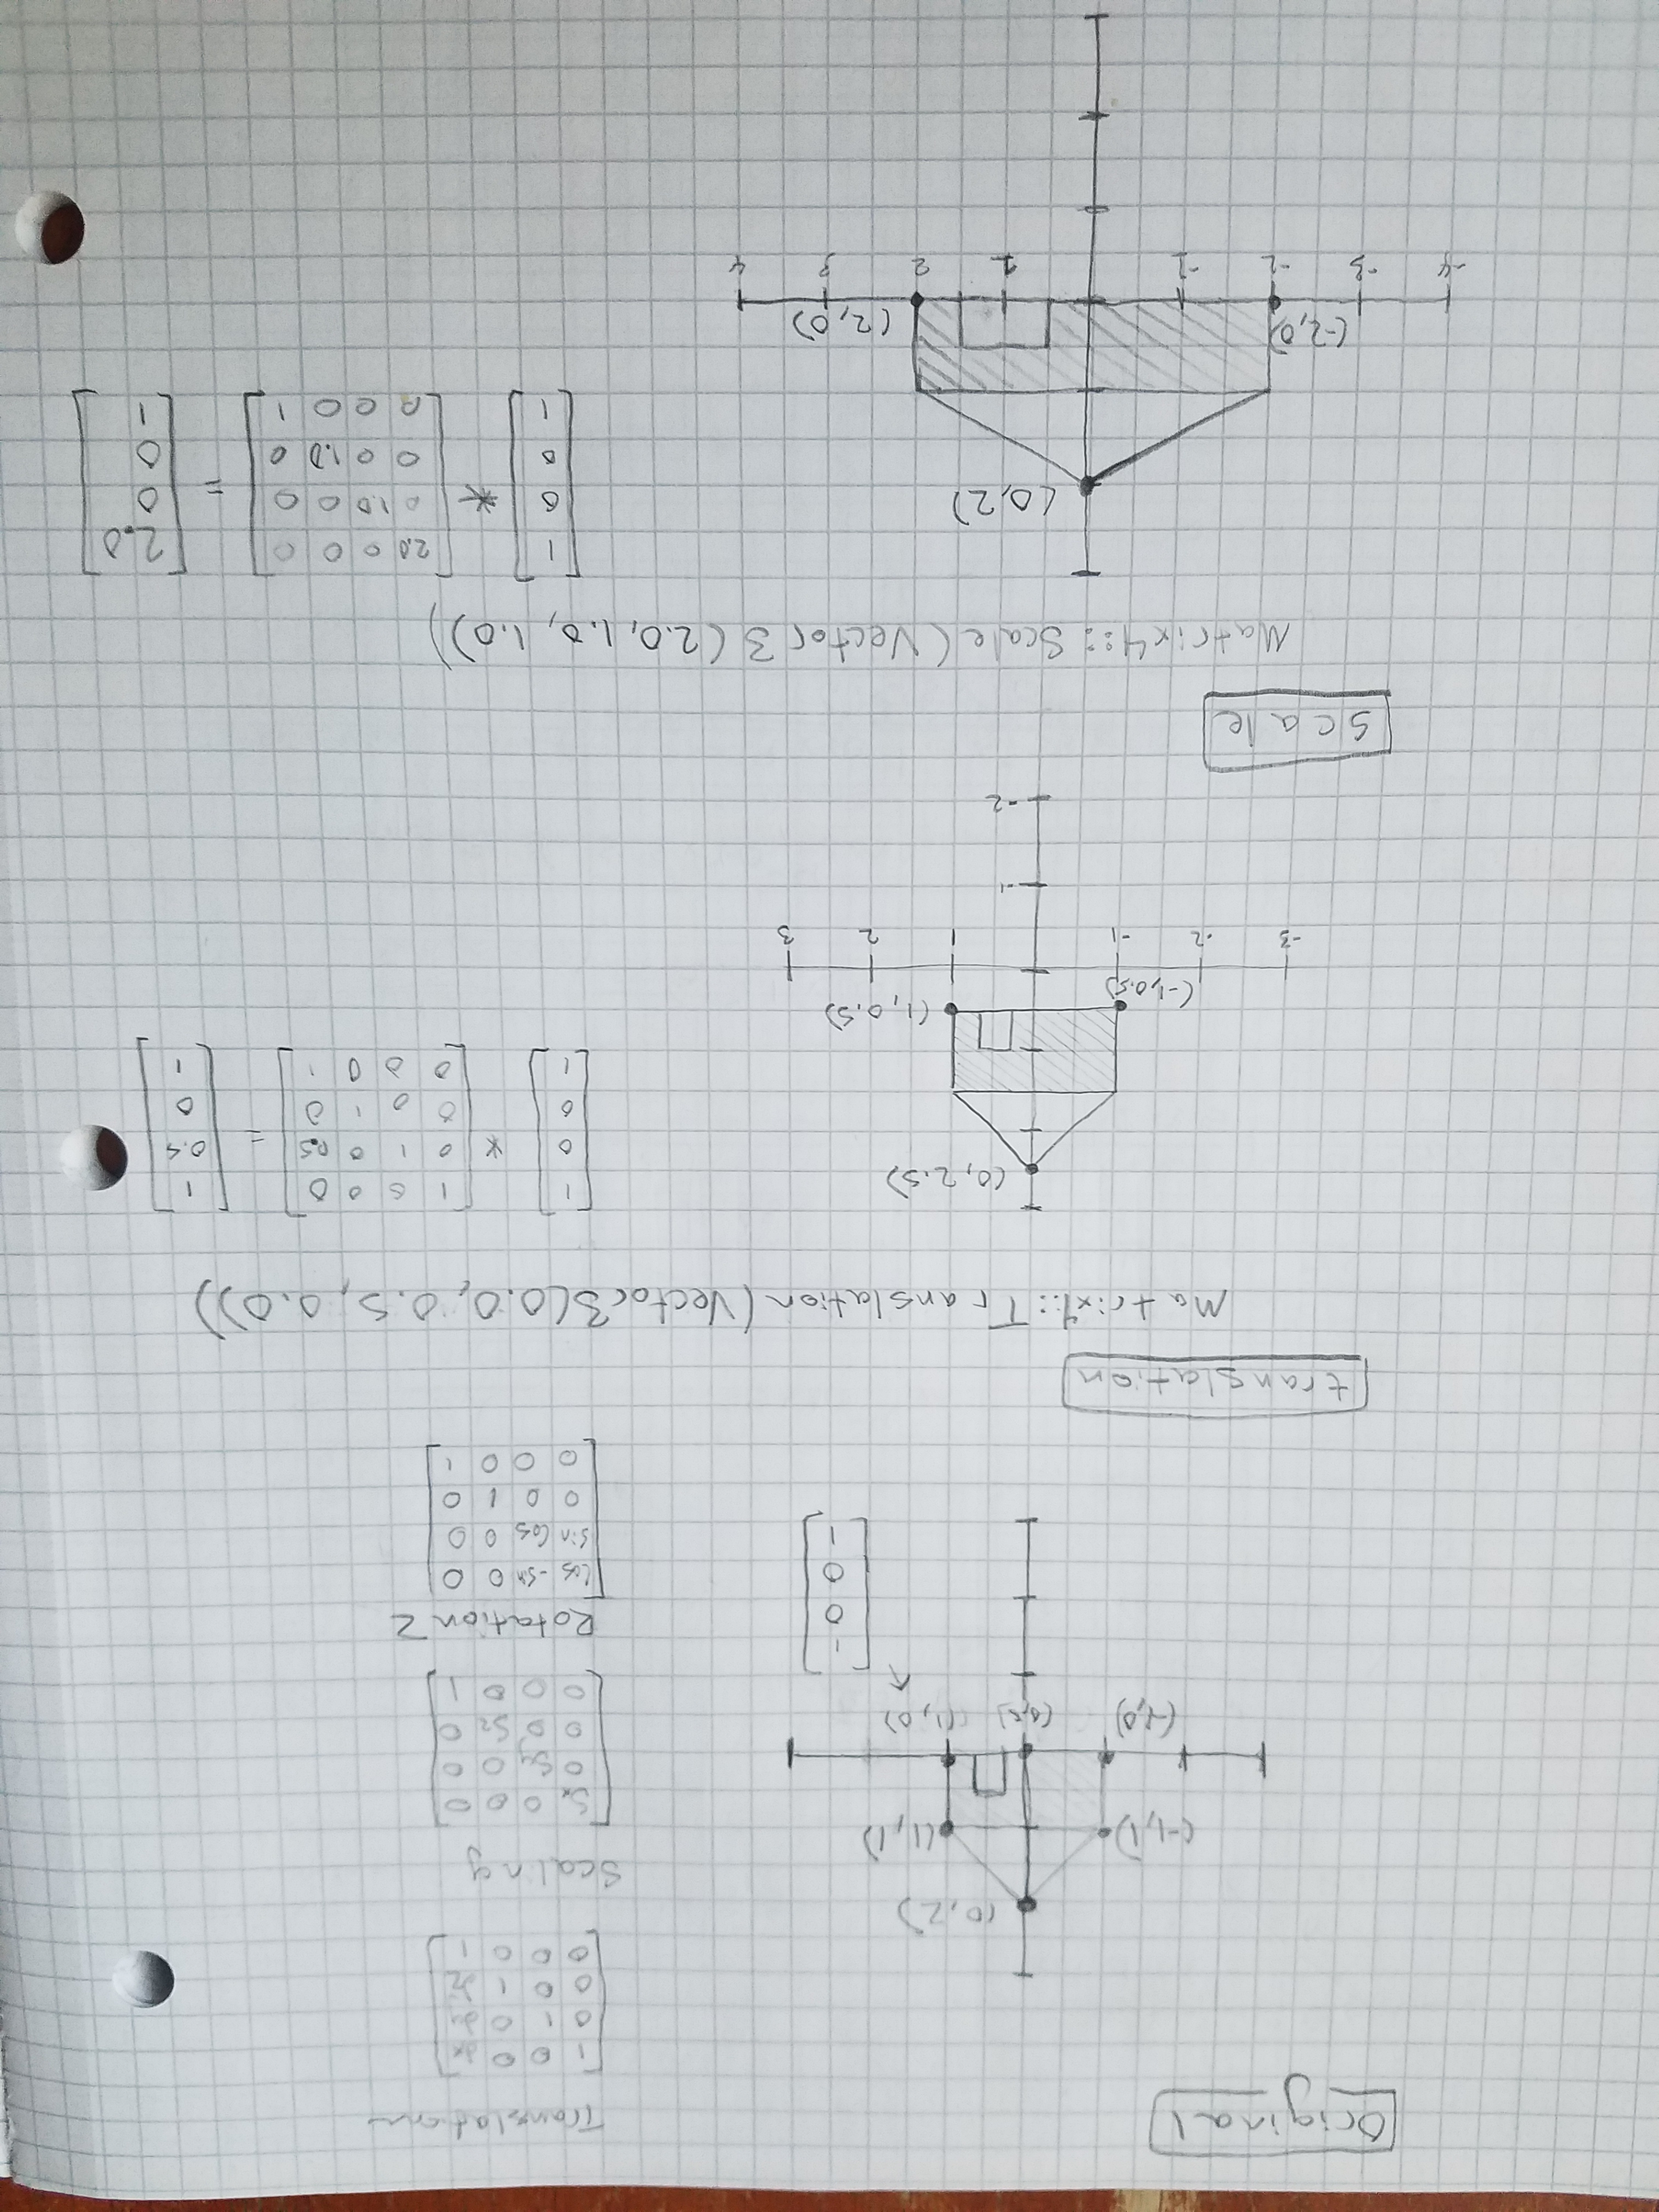 Original
Translation
1 0 0 dx
0 1 0 dy
0 0 1 dz
0 0 0 1
(0,2)
(-1,1) (1,1)
(0,0) (1,0)
1
0
0
1
Scaling
Sx 0 0 0
0 Sy 0 0
0 0 Sz 0
0 0 0 1
Rotation Z
cos -sin 0 0
sin cos 0 0
0 0 1 0
0 0 0 1
translation
Matrix4::Translation(Vector3(0.0, 0.5, 0.0))
(0, 2.5)
(-1,0.5) (1,0.5)
-3 -2 -1 1 2 3
-1
-2
1 1 0 0 0 1
0 * 0 1 0 0.5 = 0.5
0 0 0 1 0 0
1 0 0 0 1 1
Scale
Matrix4::Scale(Vector3(2.0, 1.0, 1.0))
(0,2)
(-2,0) (2,0)
-4 -3 -2 -1 1 2 3 4
1 2.0 0 0 0 2.0
0 * 0 1.0 0 0 = 0
0 0 0 1.0 0 0
1 0 0 0 1 1